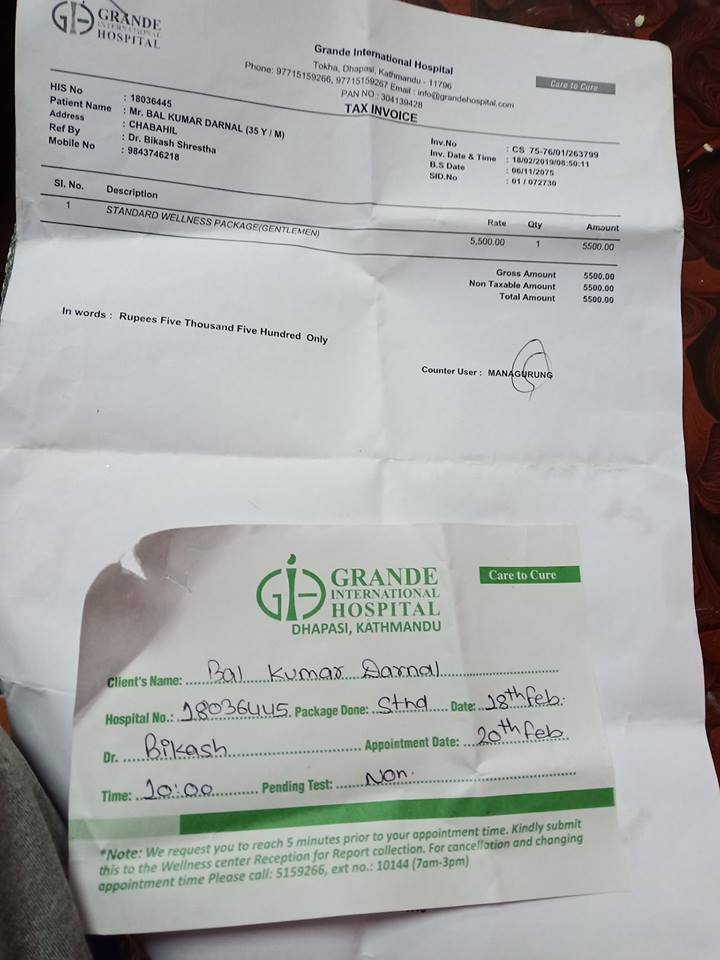 GRANDE
INTERNATIONAL
HOSPITAL
Grande International Hospital
Tokha, Dhapasi, Kathmandu - 11796
Phone: 97715159266, 97715159267 Email : info@grandehospital.com
PAN NO : 304139428
TAX INVOICE
Care to Cure
HIS No : 18036445
Patient Name : Mr. BAL KUMAR DARNAL (35 Y / M)
Address : CHABAHIL
Ref By : Dr. Bikash Shrestha
Mobile No : 9843746218
Inv.No : CS 75-76/01/263799
Inv. Date & Time : 18/02/2019/08:50:11
B.S Date : 06/11/2075
SID.No : 01 / 072730
Sl. No. Description Rate Qty Amount
1 STANDARD WELLNESS PACKAGE(GENTLEMEN) 5,500.00 1 5500.00
Gross Amount 5500.00
Non Taxable Amount 5500.00
Total Amount 5500.00
In words : Rupees Five Thousand Five Hundred Only
Counter User : MANAGURUNG
GRANDE
INTERNATIONAL
HOSPITAL
DHAPASI, KATHMANDU
Care to Cure
Client's Name: Bal Kumar Darnal
Hospital No.: 18036445 Package Done: Sthd Date: 18th Feb.
Dr. Bikash Appointment Date: 20th Feb
Time: 10:00 Pending Test: Non.
*Note: We request you to reach 5 minutes prior to your appointment time. Kindly submit
this to the Wellness center Reception for Report collection. For cancellation and changing
appointment time Please call: 5159266, ext no.: 10144 (7am-3pm)